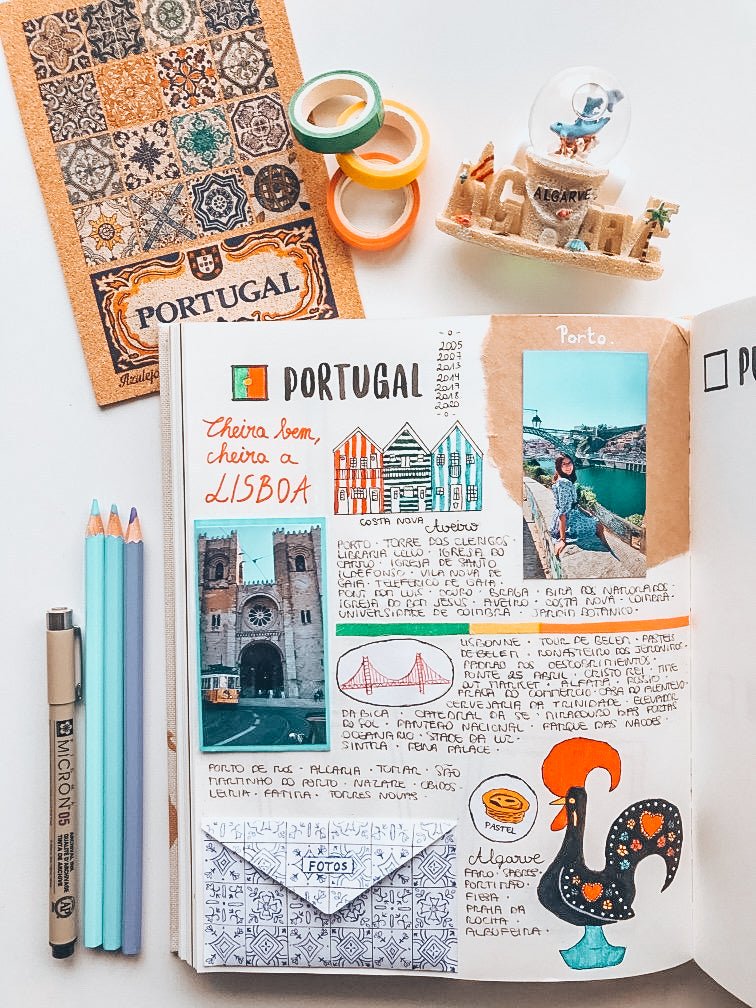 PORTUGAL
Azulejo
ALGARVE
ALGARVE
PORTUGAL
- o -
2005
2007
2013
2014
2017
2018
2020
- o -
Porto.
Cheira bem,
cheira a
LISBOA
COSTA NOVA Aveiro
PORTO · TORRE DOS CLERIGOS ·
LIBRARIA LELLO · IGREJA DO
CARMO · IGREJA DE SANTO
ILDEFONSO · VILA NOVA DE
GAIA · TELEFERICO DE GAIA ·
PONT DOM LUIS · DOURO · BRAGA · BIRA DOS NAMORADOS ·
IGREJA DO BOM JESUS · AVEIRO · COSTA NOVA · COIMBRA ·
UNIVERSIDADE DE COIMBRA · JARDIM BOTANICO ·
LISBONNE · TOUR DE BELEM · PASTEIS
DE BELEM · MONASTEIRO DOS JERONIMOS ·
PADRAO DOS DESCOBRIMENTOS ·
PONTE 25 ABRIL · CRISTO REI · TIME
OUT MARKET · ALFAMA · ROSSIO ·
PRAÇA DO COMMERCIO · CASA DO ALENTEJO ·
CERVEJARIA DA TRINIDADE · ELEVADOR
DA BICA · CATEDRAL DA SE · MIRADOURO DAS PORTAS
DO SOL · PANTEAO NACIONAL · PARQUE DAS NAÇOES ·
OCEANARIO · STADE DA LUZ ·
SINTRA · PENA PALACE ·
PORTO DE MOS · ALCARIA · TOMAR · SÃO
MARTINHO DO PORTO · NAZARE · OBIDOS ·
LEIRIA · FATIMA · TORRES NOVAS ·
FOTOS
PASTEL
Algarve
FARO · SAGRES ·
PORTIMÃO ·
PRAIA DA
ROCHA ·
ALBUFEIRA ·
MICRON 05